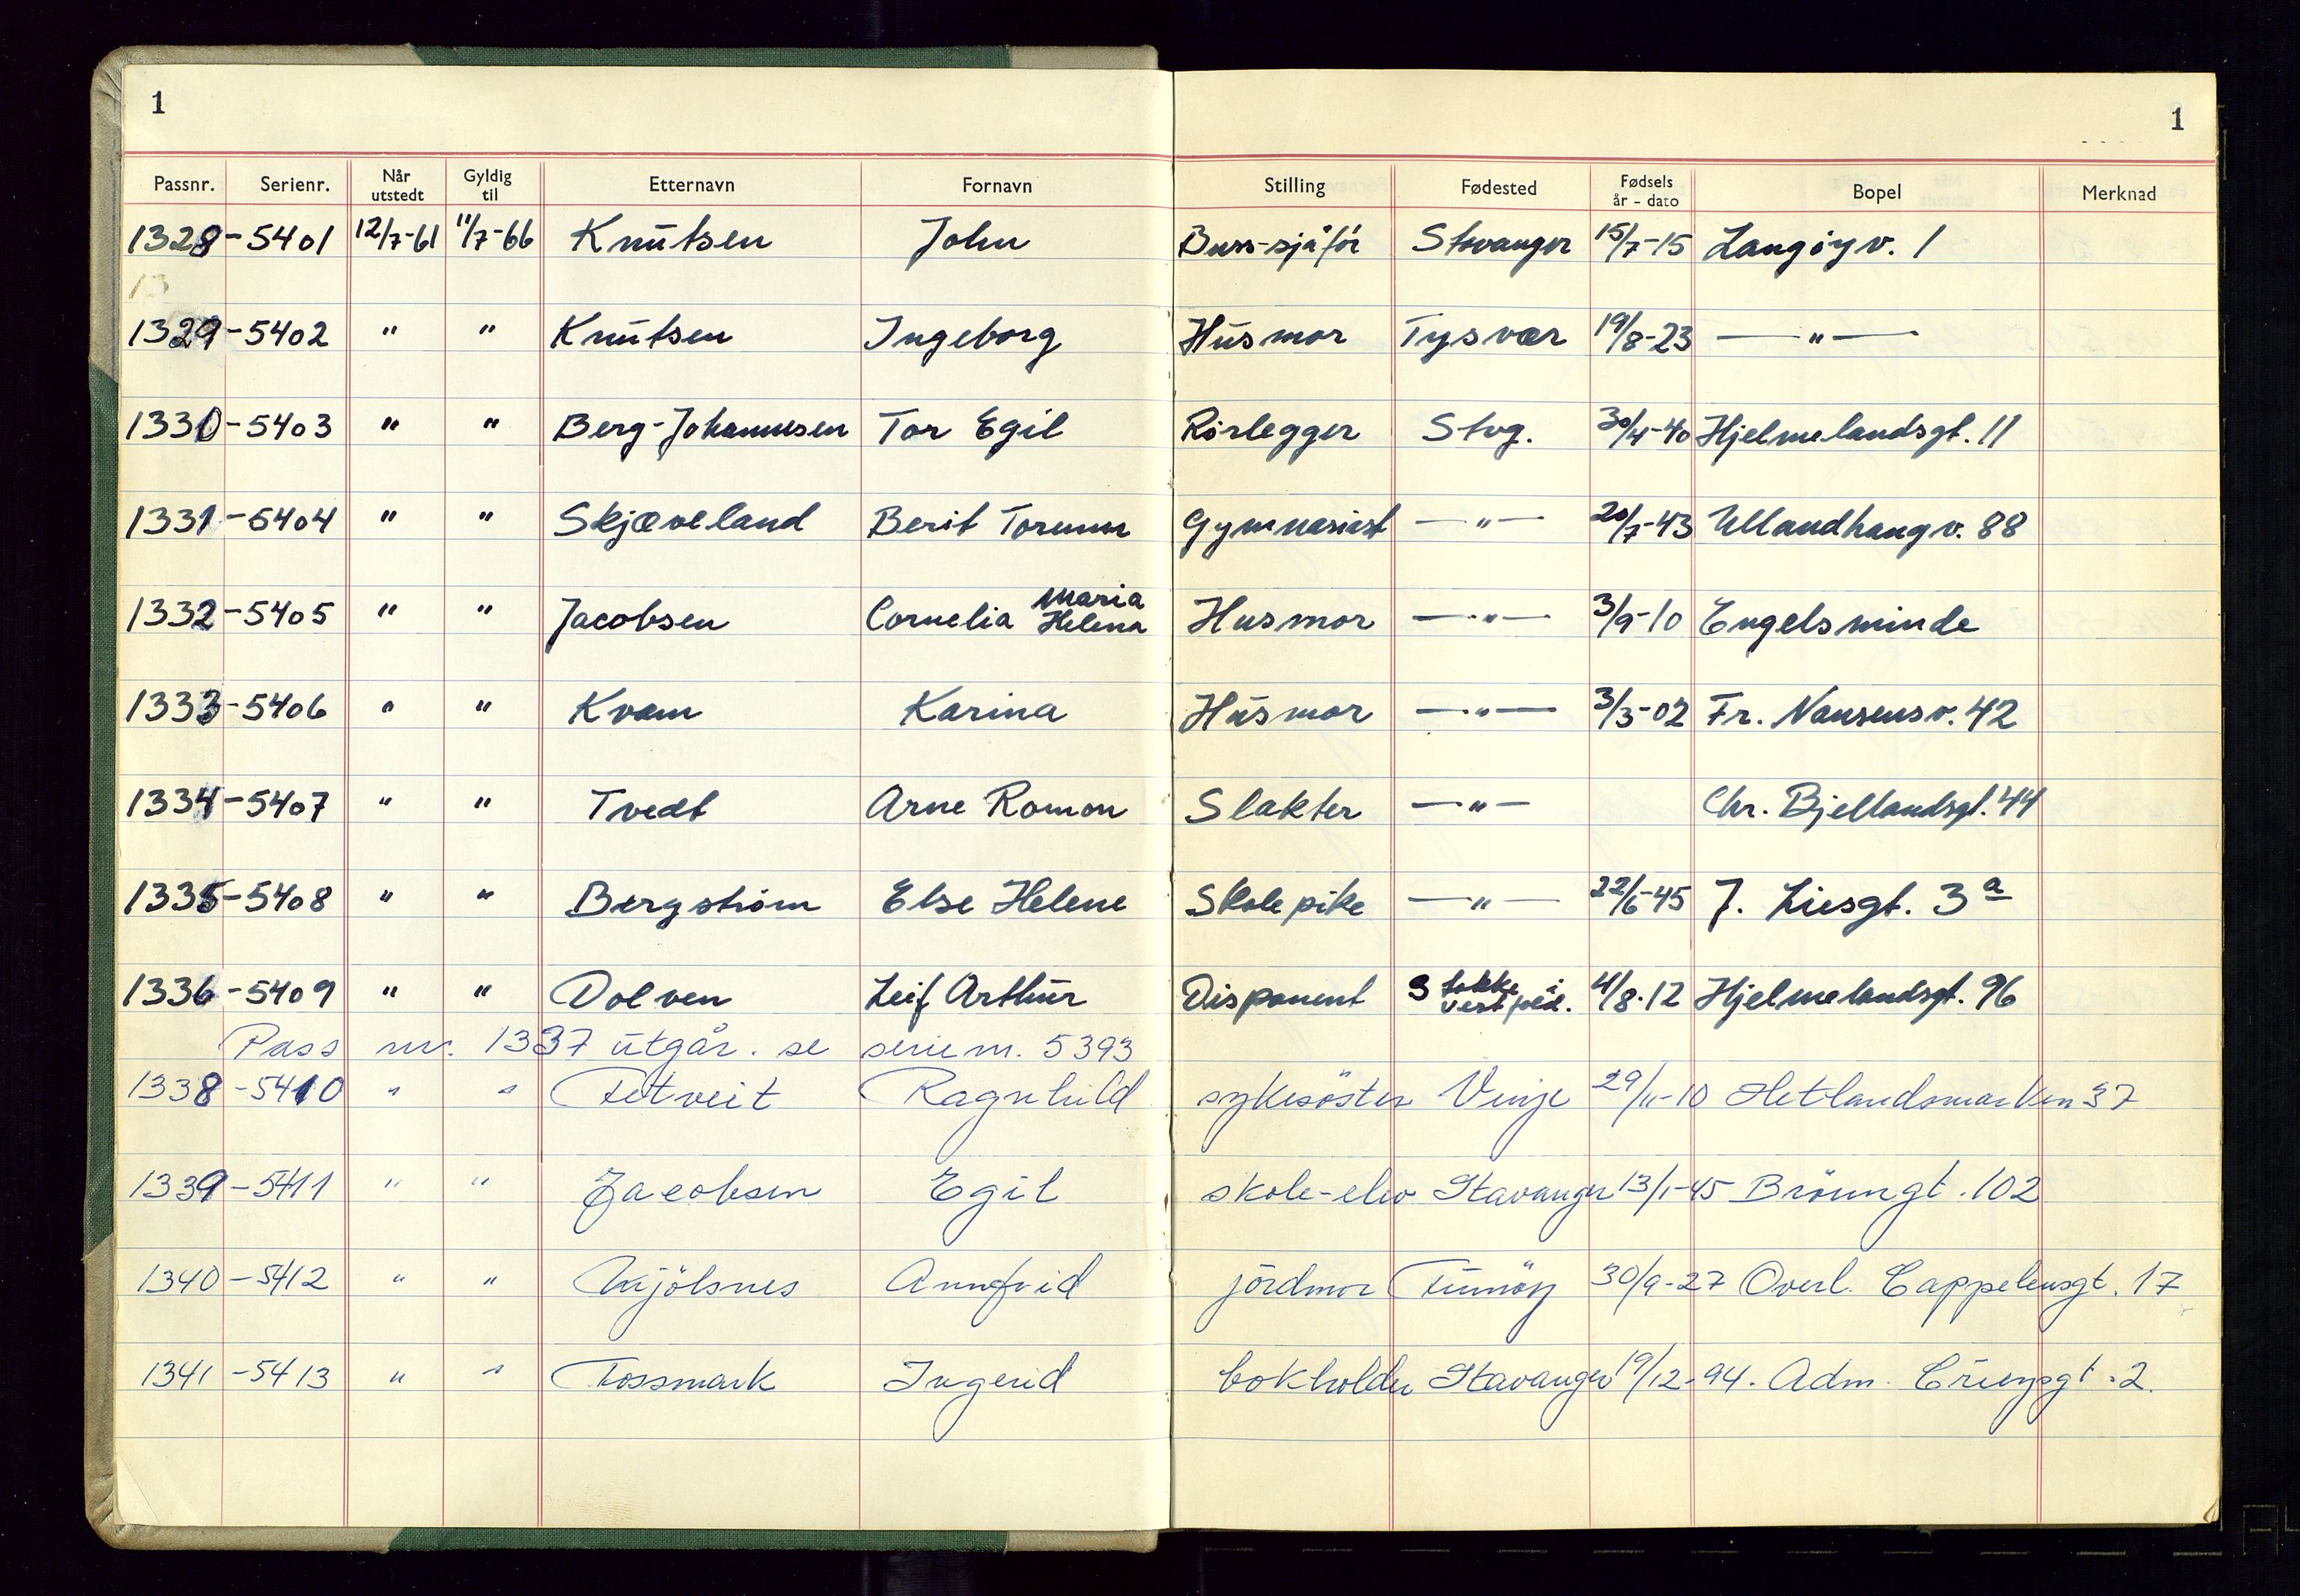 1 1
Passnr. Serienr. Når utstedt Gyldig til Etternavn Fornavn Stilling Fødested Fødsels år - dato Bopel Merknad
1328 - 5401 12/7-61 11/7-66 Knutsen John Buss-sjåfør Stavanger 15/7-15 Langøyv. 1
13
1329 - 5402 " " Knutsen Ingeborg Husmor Tysvær 19/8-23 — " —
1330 - 5403 " " Berg-Johannesen Tor Egil Rørlegger Stvg. 30/4-40 Hjelmelandsgt. 11
1331 - 5404 " " Skjæveland Berit Torunn Gymnasiast — " — 20/7-43 Ullandhaugv. 88
1332 - 5405 " " Jacobsen Cornelia Maria Helena Husmor — " — 3/9-10 Engelsminde
1333 - 5406 " " Kvam Karina Husmor — " — 3/3-02 Fr. Nansensv. 42
1334 - 5407 " " Tvedt Arne Roman Slakter — " — Chr. Bjellandsgt. 44
1335 - 5408 " " Bergstrøm Else Helene Skolepike — " — 22/6-45 J. Liesgt. 3a
1336 - 5409 " " Dolven Leif Arthur Disponent Stokke i Vestfold. 4/8-12 Hjelmelandsgt. 96
Pass nr. 1337 utgår. se serienr. 5393
1338 - 5410 " " Tetveit Ragnhild sykesöster Vinje 29/11-10 Hetlandsmarken 37
1339 - 5411 " " Jacobsen Egil skole-elev Stavanger 13/1-45 Bröungt. 102
1340 - 5412 " " Mjölsnes Annfrid jördmor Finnöy 30/9-27 Overl. Cappelensgt. 17
1341 - 5413 " " Fossmark Ingerid bokholder Stavanger 19/12-94. Adm. Cruysgt. 2.